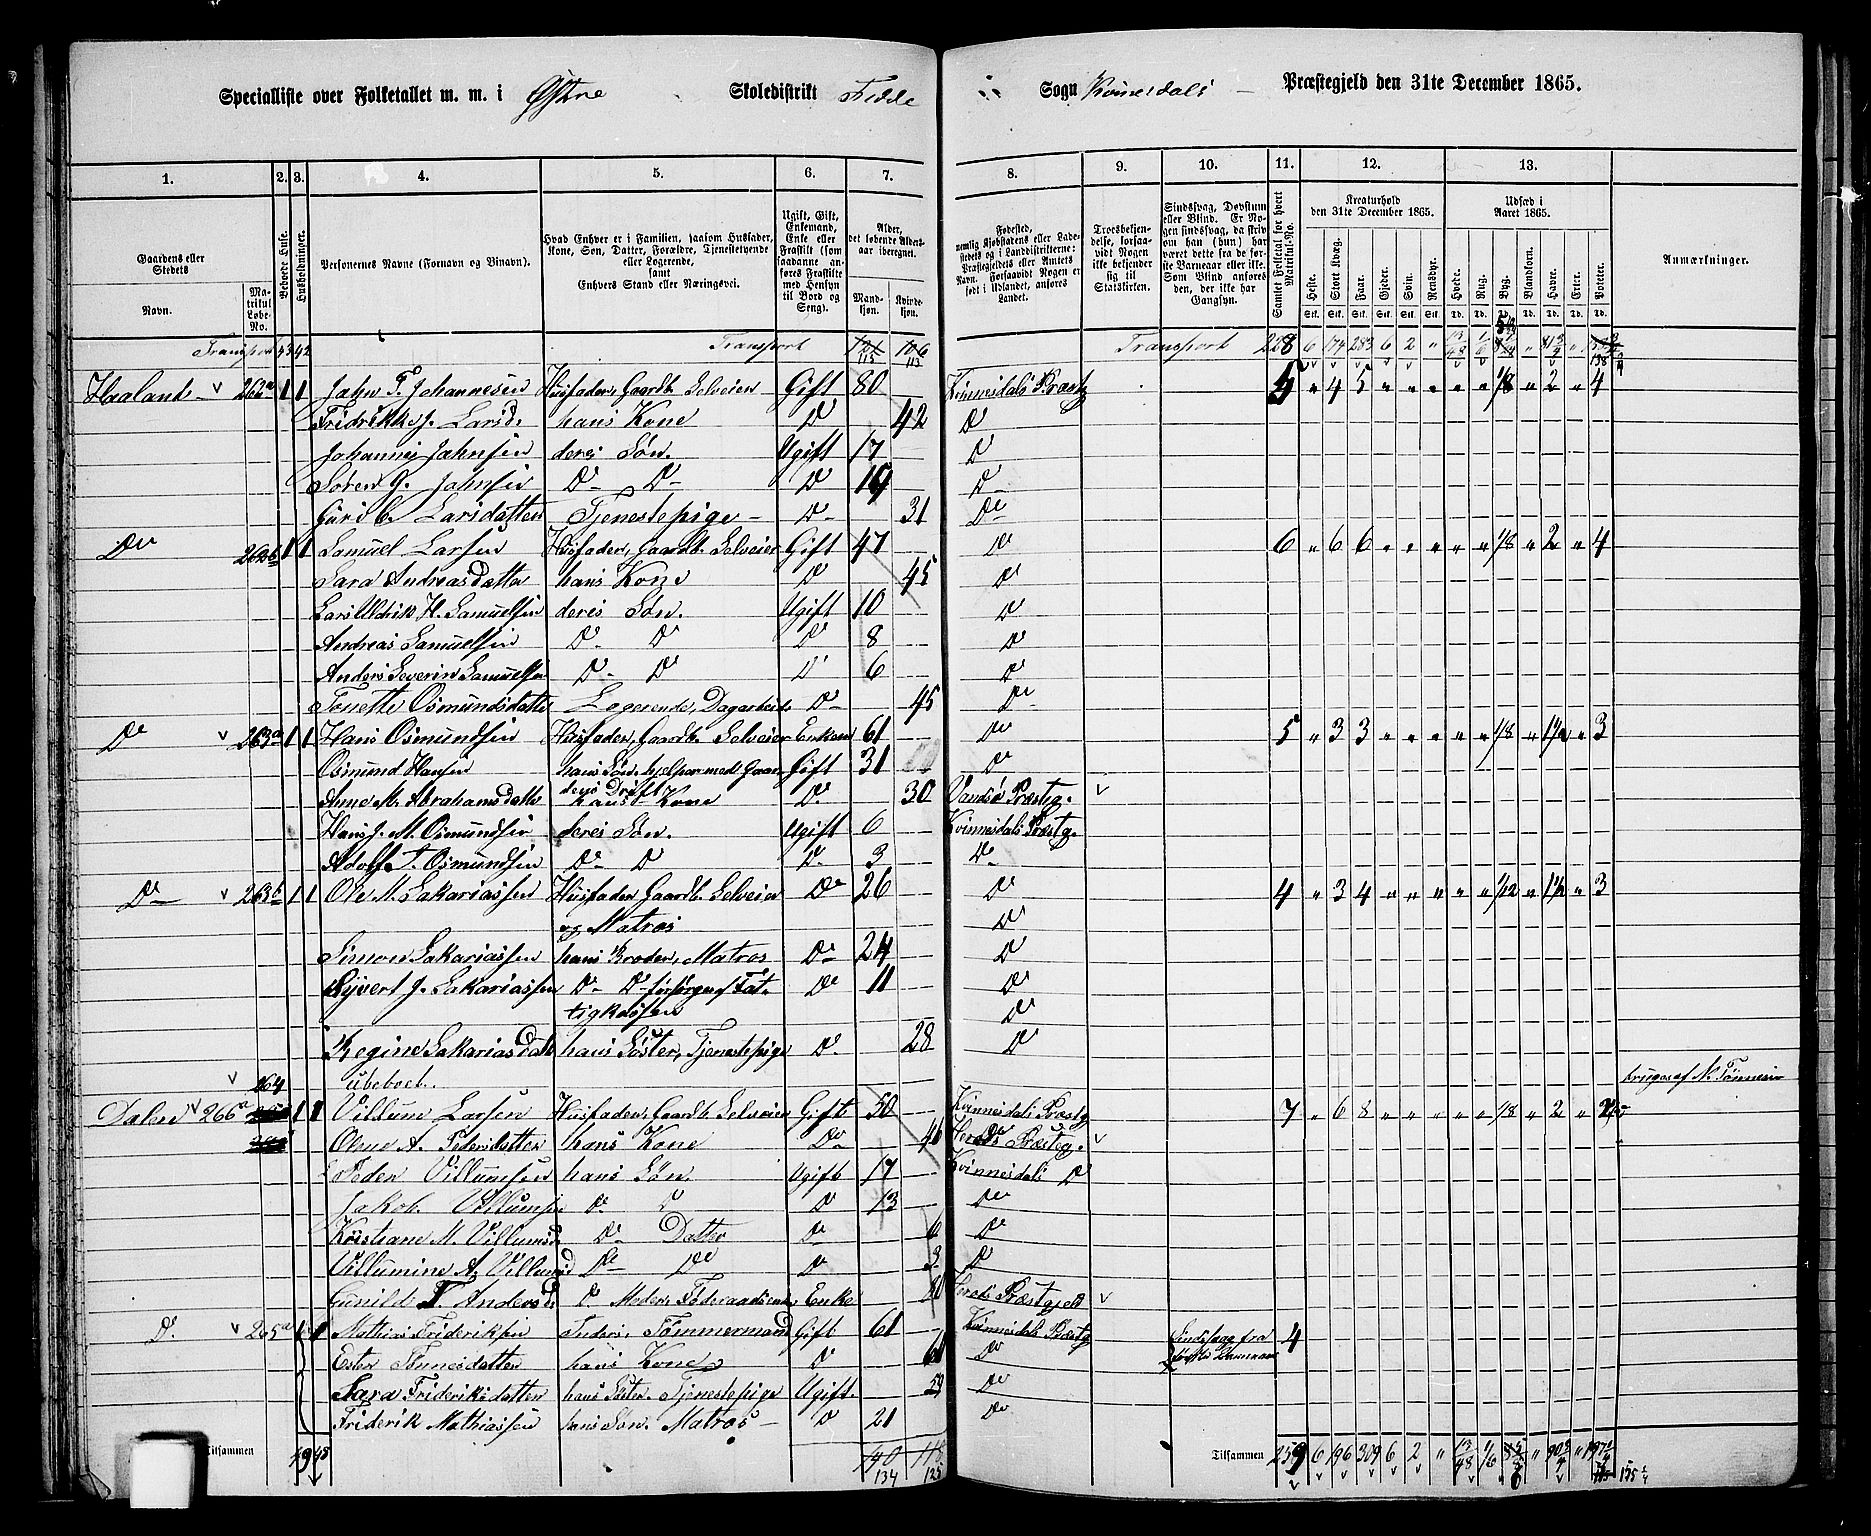 Specialliste over Folketallet m. m. i Østre Skoledistrikt Fedde Sogn Kvinesdals Præstegjeld den 31te December 1865.
1. 2. 3. 4. 5. 6. 7. 8. 9. 10. 11. 12. 13.
Gaardens eller Stedets
Navn.
Matrikul Løbe-No.
Beboede Huse.
Husholdninger.
Personernes Navne (Fornavn og Binavn).
Hvad Enhver er i Familien, saasom Husfader, Kone, Søn, Datter, Forældre, Tjenestetyende eller Logerende, samt Enhvers Stand eller Næringsvei.
Ugift, Gift, Enkemand, Enke eller Fraskilt (som saadanne anføres Fraskilte med Hensyn til Bord og Seng).
Alder, det løbende Alders-aar iberegnet.
Mandkjøn. Kvindekjøn.
Fødested, nemlig Kjøbstadens eller Ladestedets og i Landdistrikterne: Præstegjeldets eller Amtets Navn. Forsaavidt Nogen er født i Udlandet, anføres Landet.
Troesbekjendelse, forsaavidt Nogen ikke bekjender sig til Statskirken.
Sindssvag, Døvstum eller Blind. Er Nogen sindssvag, da skriv om han (hun) har været dette fra de første Barneaar eller ikke. Som Blind anføres den, der ikke har Gangsyn.
Samlet Folketal for hvert Matrikul-No.
Kreaturhold den 31te December 1865.
Heste. Stort Kvæg. Faar. Gjeder. Svin. Rensdyr.
Udsæd i Aaret 1865.
Hvede. Rug. Byg. Blandkorn. Havre. Erter. Poteter.
Anmærkninger.
Transport 43 42 Transport 113 106 113 Transport 228 6 174 283 6 2 "
Haaland 262a 1 1 Jahn T. Johannesen Husfader, Gaardb. Selveier Gift 80 Kvinnesdals Præstg 5 " 4 5 " " " " " 1/8 " 2 " 4
Fridrikke J. Larsd. hans Kone D 42 D
Johannes Jahnsen deres Søn. Ugift 17 D
Søren G. Jahnsen D- D- D 19 D
Guri C. Larsdatter Tjenestepige - D- 31 Do
Do 262b 1 1 Samuel Larsen Husfader, Gaardb. Selveier Gift 47 Do 6 " 6 6 " " " " " 1/8 " 2 " 4
Sara Andreasdatter hans Kone D 45 Do
Lars Uldrik H. Samuelsen deres Søn. Ugift 10 D
Andreas Samuelsen D- D D 8 D
Anders Severin Samuelsen D- Do D 6 D
Tonette Osmundsdatter Logerende, Dagarbeide D- 45 Do
Do 263a 1 1 Hans Osmundsen Husfader, Gaardb. Selveier Enkem 61 Do 5 " 3 3 " " " " " 1/8 " 1 1/2 " 3
Osmund Hansen hans Søn, hjelper med Gaardens Drift Gift 31 Do
Anne M. Abrahamsdatter hans Kone D. 30 Vandsø Præsteg.
Hans J. M. Osmundsen deres Søn. Ugift 6 Kvinnesdals Præstg.
Adolf T. Osmundsen D- D D. 3 D-
D- 263b 1 1 Ole M. Sakariassen Husfader Gaardb. Selveier og Matros Do 26 D 4 " 3 4 " " " " " 1/12 " 1 1/2 " 3
Simon Sakariassen hans Broder, Matros D- 24 D
Syvert J. Sakariassen D- D- forsørges af Fattigkassen Do 11 Do
Regine Sakariasdatt hans Søster, Tjenestepige D. 28 D
264 ubeboet. bruges af N. Tønnesen
Dalen 266a 1 1 Villum Larsen Husfader, Gaardb. Selveier Gift 50 Kvinnesdals Præstg 7 " 6 8 " " " " " 1/8 " 2 "
Olene A. Pedersdatter hans Kone Do 46 Herads Præsteg.
Peder Villumsen hans Søn Ugift 17 Kvinnesdals D
Jakob Villumsen D- D D 13 Do
Kristiane M. Villumsd. D- Datter D 6 D
Villumine A. Villumsd D- Do D 3 D
Gunild T. Andersd. D. Moder, Føderaadsenke Enke 80 Herads Præstgjeld
D. 265a 1 1 Mathias Frideriksen Inders, Tømmermand Gift 61 Kvinnesdals Præstg 4
Ester Tønnesdatter hans Kone D 61 Do Sindssvag fra første Barneaar
Sara Frideriksdatter hans Søster. Tjenestepige Ugift. 59 Do
Friderik Mathiassen hans Søn. Matros - D 21 Do
Tilsammen 49 48 140 134 118 125 Tilsammen 259 6 196 309 6 2 "